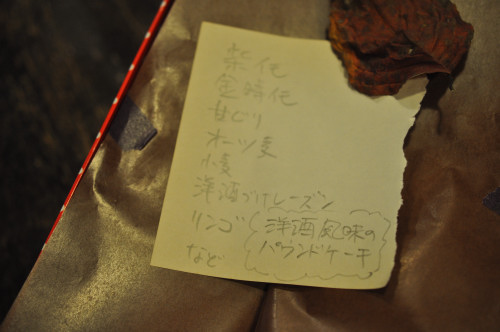 紫イモ
金時イモ
甘ぐり
オーツ麦
小麦
洋酒づけレーズン
リンゴ
など
洋酒風味の
パウンドケーキ